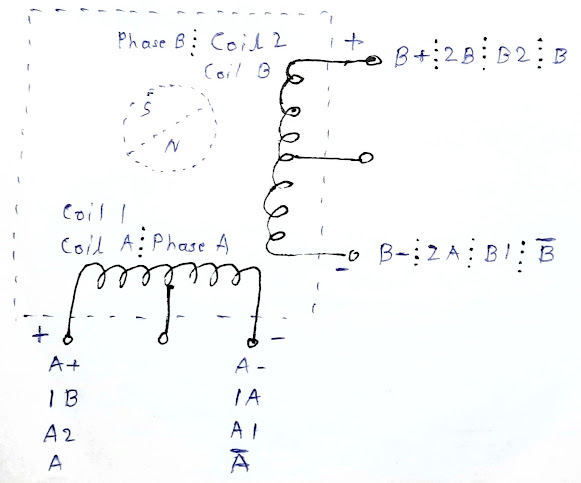 Phase B ⋮ Coil 2
Coil B
+
B+ ⋮ 2B ⋮ B2 ⋮ B
S
N
Coil 1
Coil A ⋮ Phase A
-
B- ⋮ 2A ⋮ B1 ⋮ B̅
+
-
A+
A-
1B
1A
A2
A1
A
A̅